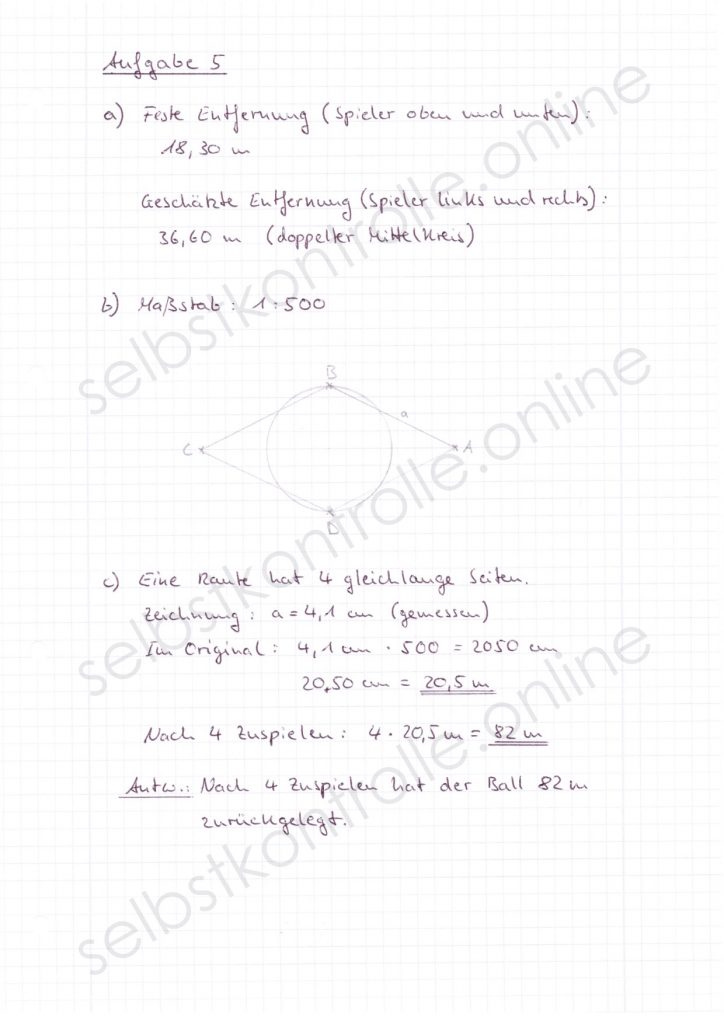 Aufgabe 5
a) Feste Entfernung (Spieler oben und unten):
18,30 m
Geschätzte Entfernung (Spieler links und rechts):
36,60 m (doppelter Mittelkreis)
b) Maßstab: 1:500
B
a
C
A
D
c) Eine Raute hat 4 gleichlange Seiten.
Zeichnung: a = 4,1 cm (gemessen)
Im Original: 4,1 cm · 500 = 2050 cm
20,50 cm = 20,5 m
Nach 4 Zuspielen: 4 · 20,5 m = 82 m
Antw.: Nach 4 Zuspielen hat der Ball 82 m
zurückgelegt.
selbstkontrolle.online
selbstkontrolle.online
selbstkontrolle.online